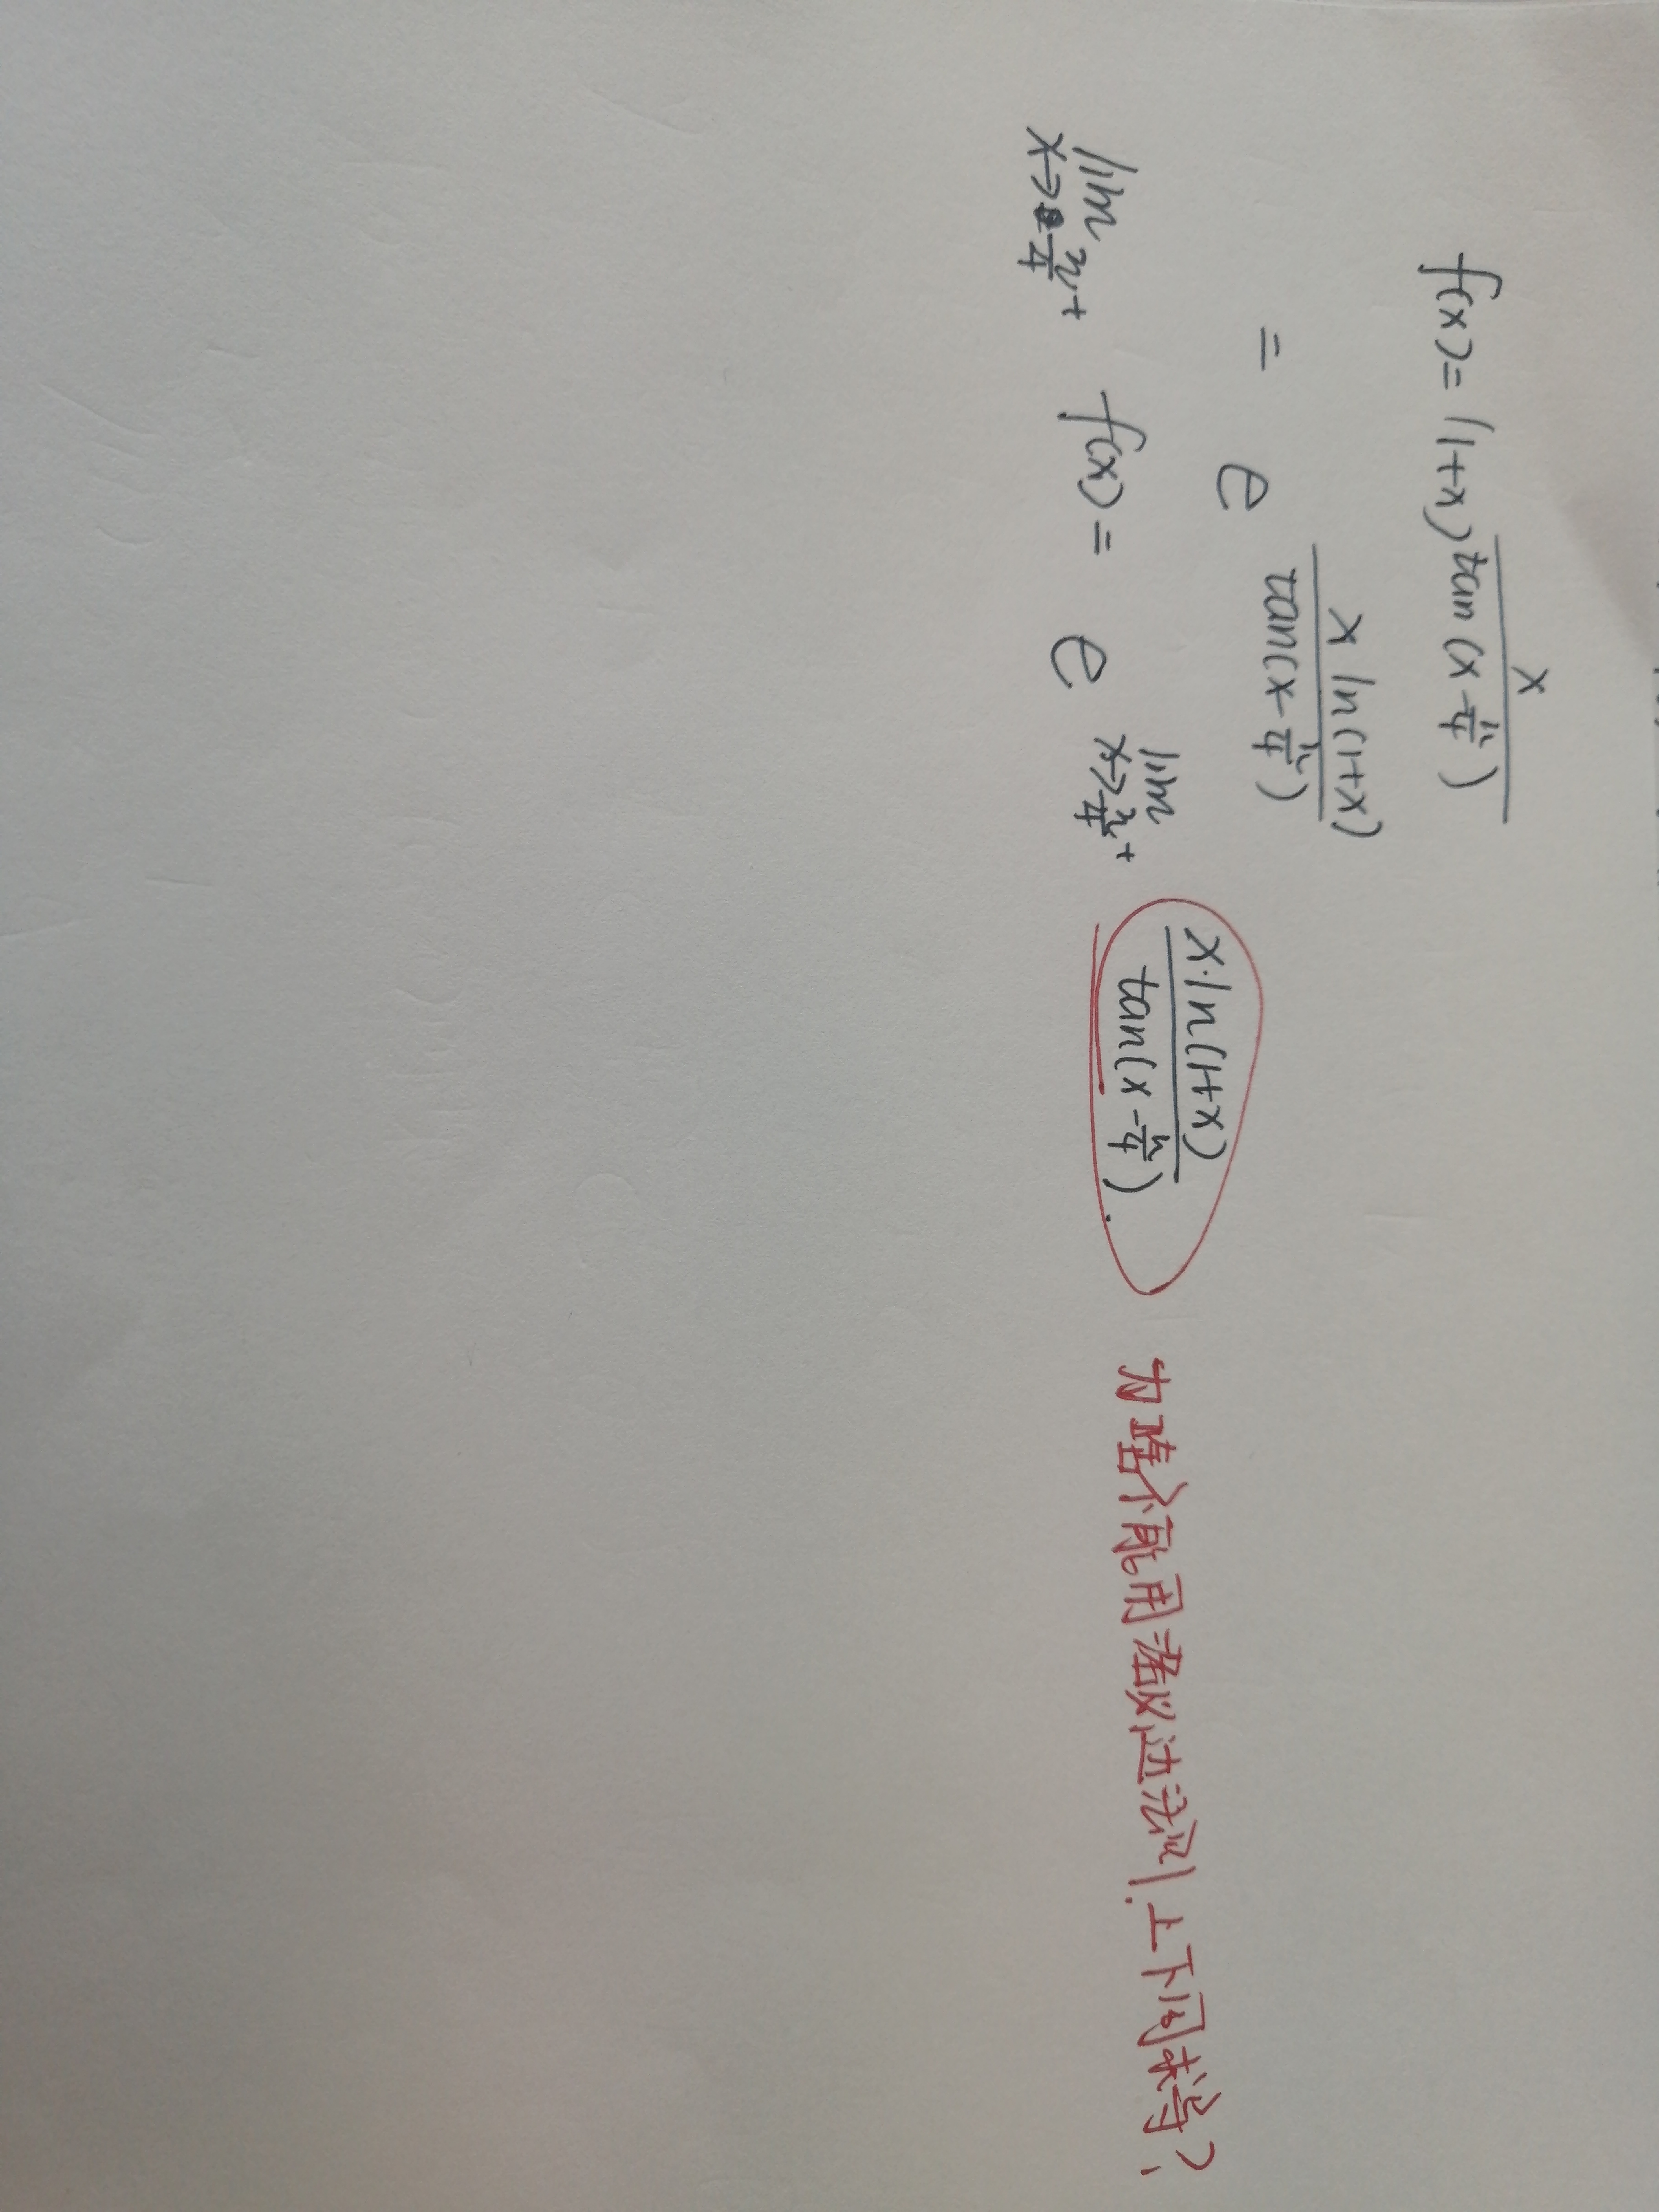 f(x) = (1+x)^{\frac{x}{tan(x-\frac{π}{4})}}
= e^{\frac{x ln(1+x)}{tan(x-\frac{π}{4})}}
lim_{x→\frac{π}{4}^+} f(x) = e^{lim_{x→\frac{π}{4}^+} \frac{x·ln(1+x)}{tan(x-\frac{π}{4})}}. 为啥不能用洛必达法则.上下同求导?